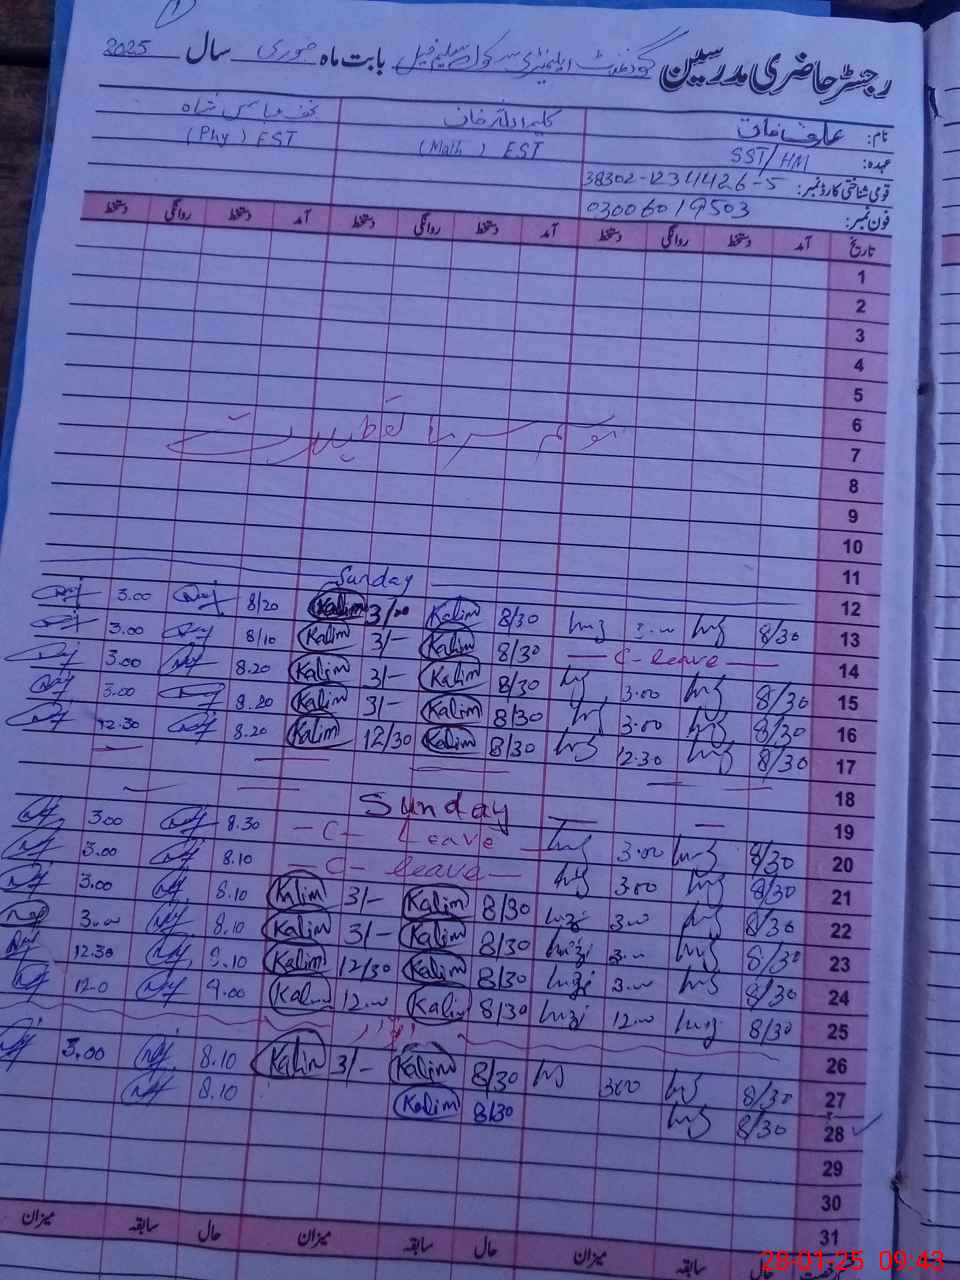 رجسٹر حاضری مدرسین گورنمنٹ ایلیمنٹری سکول سلیم خیل بابت ماہ جنوری سال 2025
نام: عارف خان کلیم اللہ خان نجف عباس شاہ
عہدہ: SST/HM (Math) EST (Phy) EST
قومی شناختی کارڈ نمبر: 38302-1234426-5
فون نمبر: 03006019503
تاریخ آمد دستخط روانگی دستخط آمد دستخط روانگی دستخط آمد دستخط روانگی دستخط
1
2
3
4
5
6
موسم سرما تعطیلات
7
8
9
10
11
Sunday
12
13 8/30 3.00 8/30 Kalim 3/00 Kalim 8/20 3.00
14 C-leave 8/30 Kalim 3/- Kalim 8/10 3.00
15 8/30 3.00 8/30 Kalim 3/- Kalim 8.20 3.00
16 8/30 3.00 8/30 Kalim 3/- Kalim 8.20 3.00
17 8/30 12.30 8/30 Kalim 12/30 Kalim 8.20 12.30
18
19 Sunday
20 8/30 3.00 C- Leave 8.30 3.00
21 8/30 3.00 C- leave 8.10 3.00
22 8/30 3.00 8/30 Kalim 3/- Kalim 8.10 3.00
23 8/30 3.00 8/30 Kalim 3/- Kalim 8.10 3.00
24 8/30 3.00 8/30 Kalim 12/30 Kalim 8.10 12.30
25 8/30 12.00 8/30 Kalim 12.00 Kalim 9.00 12.0
26 اتوار
27 8/30 3.00 8/30 Kalim 3/- Kalim 8.10 3.00
28 8/30 8/30 Kalim 8.10
29
30
31
حال سابقہ میزان حال سابقہ میزان حال سابقہ میزان
28-01-25 09:43